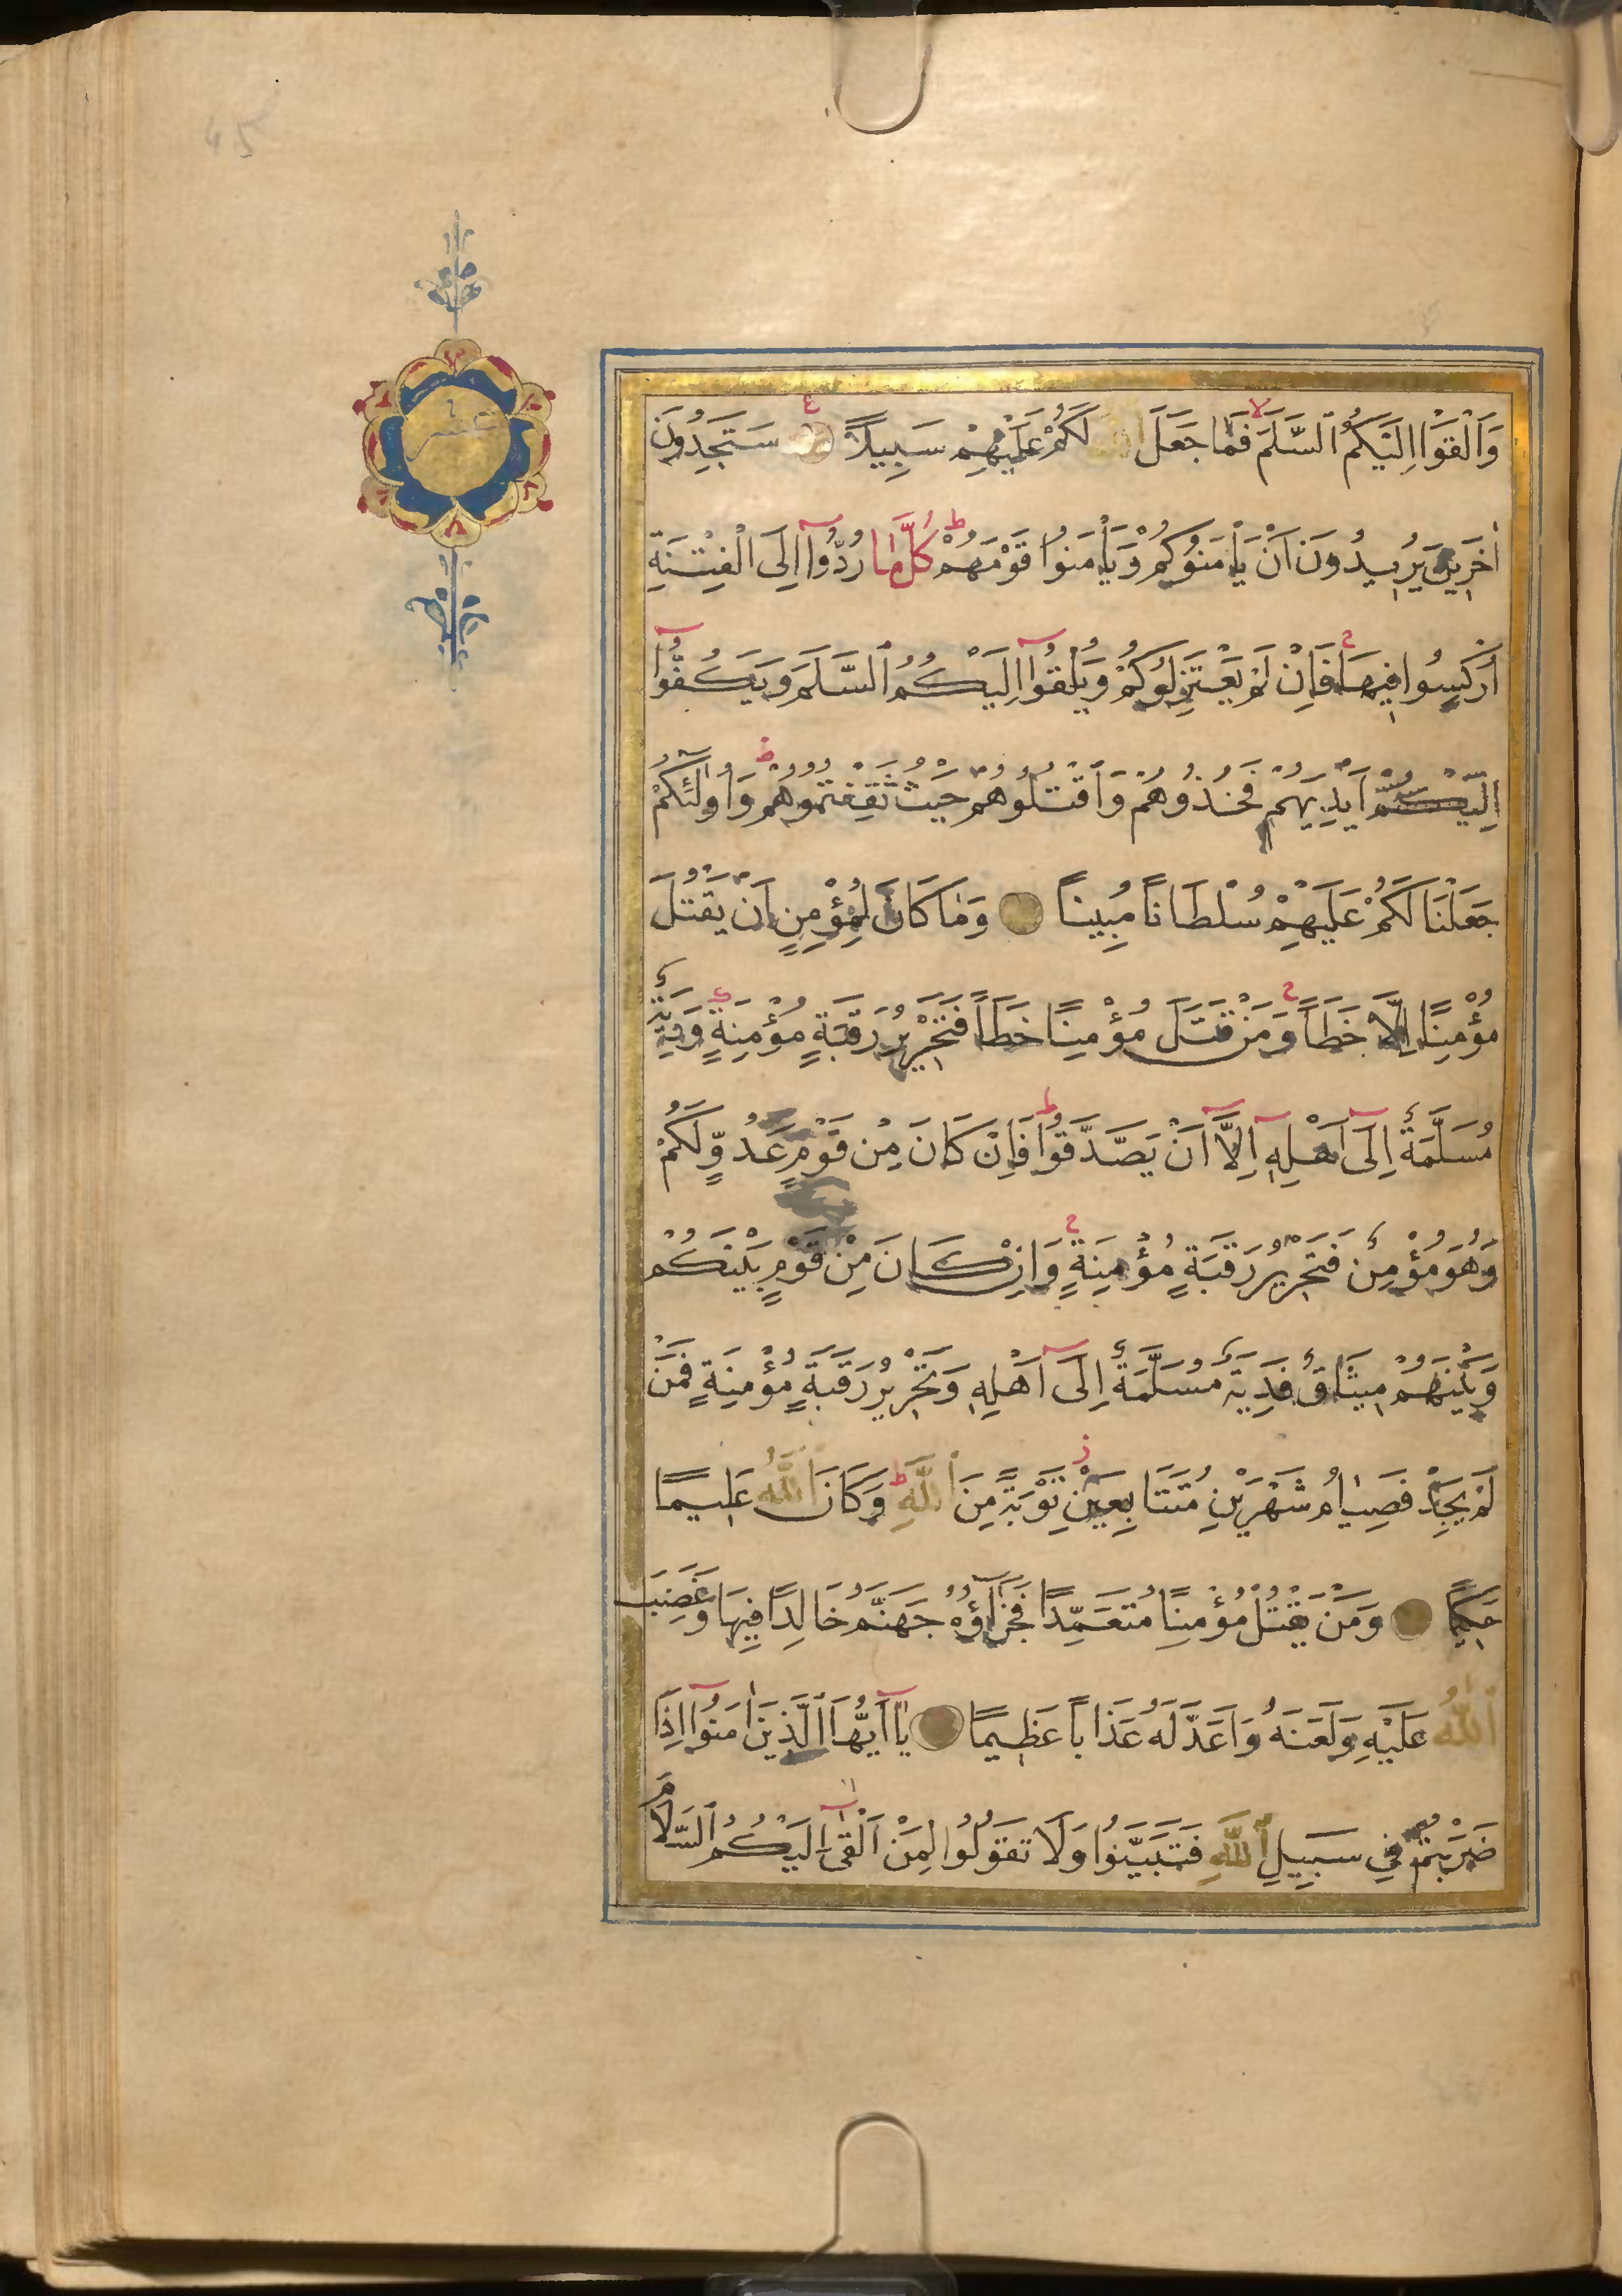 وَاَلْقَوْا اِلَيْكُمُ ٱلسَّلَمَ فَمَا جَعَلَ ٱللّٰهُ لَكُمْ عَلَيْهِمْ سَبِيلاً سَتَجِدُونَ
اٰخَرِينَ يُرِيدُونَ اَنْ يَأْمَنُوكُمْ وَيَأْمَنُوا قَوْمَهُمْ كُلَّمَا رُدُّوٓا اِلَى الْفِتْنَةِ
اُرْكِسُوا فِيهَا فَاِنْ لَمْ يَعْتَزِلُوكُمْ وَيُلْقُوٓا اِلَيْكُمُ ٱلسَّلَمَ وَيَكُفُّوٓا
اَيْدِيَهُمْ فَخُذُوهُمْ وَٱقْتُلُوهُمْ حَيْثُ ثَقِفْتُمُوهُمْ وَاُولٰٓئِكُمْ
جَعَلْنَا لَكُمْ عَلَيْهِمْ سُلْطَانًا مُبِينًا وَمَا كَانَ لِمُؤْمِنٍ اَنْ يَقْتُلَ
مُؤْمِنًا اِلَّا خَطَاً وَمَنْ قَتَلَ مُؤْمِنًا خَطَاً فَتَحْرِيرُ رَقَبَةٍ مُؤْمِنَةٍ وَدِيَةٌ
مُسَلَّمَةٌ اِلَىٓ اَهْلِهِٓ اِلَّآ اَنْ يَصَّدَّقُوا فَاِنْ كَانَ مِنْ قَوْمٍ عَدُوٍّ لَكُمْ
وَهُوَ مُؤْمِنٌ فَتَحْرِيرُ رَقَبَةٍ مُؤْمِنَةٍ وَاِنْ كَانَ مِنْ قَوْمٍ بَيْنَكُمْ
وَبَيْنَهُمْ مِيثَاقٌ فَدِيَةٌ مُسَلَّمَةٌ اِلَىٓ اَهْلِهِ وَتَحْرِيرُ رَقَبَةٍ مُؤْمِنَةٍ فَمَنْ
لَمْ يَجِدْ فَصِيَامُ شَهْرَيْنِ مُتَتَابِعَيْنِ تَوْبَةً مِنَ ٱللّٰهِ وَكَانَ ٱللّٰهُ عَلِيمًا
حَكِيمًا وَمَنْ يَقْتُلْ مُؤْمِنًا مُتَعَمِّدًا فَجَزَآؤُهُ جَهَنَّمُ خَالِدًا فِيهَا وَغَضِبَ
ٱللّٰهُ عَلَيْهِ وَلَعَنَهُ وَاَعَدَّ لَهُ عَذَابًا عَظِيمًا يَآ اَيُّهَا الَّذِينَ اٰمَنُوٓا اِذَا
ضَرَبْتُمْ فِي سَبِيلِ ٱللّٰهِ فَتَبَيَّنُوا وَلَا تَقُولُوا لِمَنْ اَلْقٰىٓ اِلَيْكُمُ ٱلسَّلَامَ